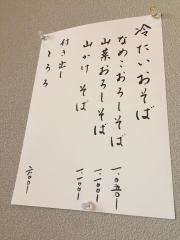 冷たいおそば
なめこおろしそば 一、〇五〇ー
山菜おろしそば 一、一〇〇ー
山かけ そば 一、一〇〇ー
付き出し
とろろ 六〇〇ー